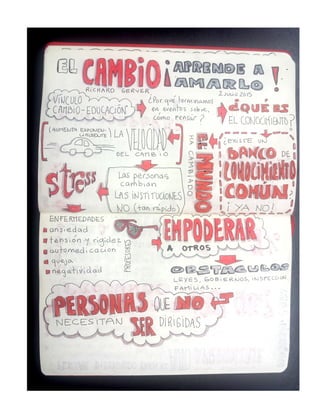 EL CAMBIO ¡APRENDE A
AMARLO!
RICHARD GERVER
VÍNCULO
CAMBIO-EDUCACIÓN
¿Por qué terminamos
en eventos sobre
cómo pensar?
¿QUÉ ES
EL CONOCIMIENTO?
(AUMENTA EXPONEN-
CIALMENTE)
LA VELOCIDAD
DEL CAMBIO
EL MUNDO
HA CAMBIADO
¿EXISTE UN
BANCO DE
CONOCIMIENTO
COMÚN?
¡YA NO!
Stress
Las personas
cambian
LAS INSTITUCIONES
NO (tan rápido)
ENFERMEDADES
ansiedad
tensión y rigidez
automedicación
queja
negatividad
PROFESORES
EMPODERAR
A OTROS
OBSTÁCULOS
LEYES, GOBIERNOS, INSPECCIÓN
FAMILIAS...
PERSONAS QUE NO
NECESITAN SER DIRIGIDAS